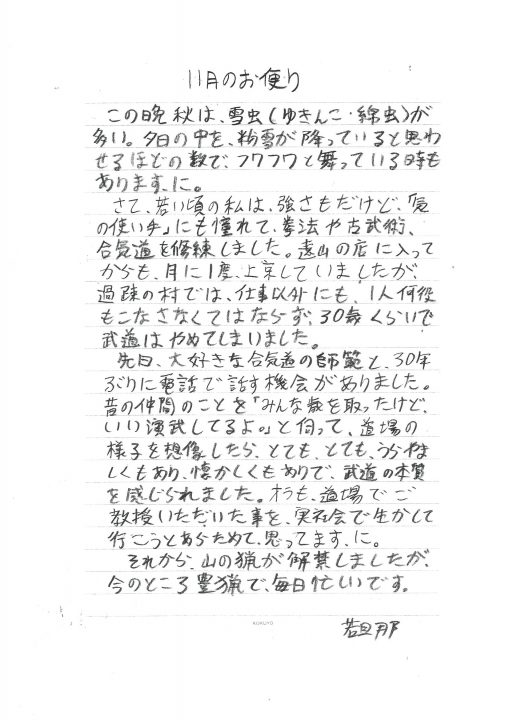 11月のお便り
この晩秋は、雪虫(ゆきんこ・綿虫)が
多い。夕日の中を、粉雪が降っていると思わ
せるほどの数で、フワフワと舞っている時も
あります、に。
さて、若い頃の私は、強さもだけど、「気
の使い手」にも憧れて、拳法や古武術、
合気道を修練しました。遠山の店に入って
からも、月に1度、上京していましたが、
過疎の村では、仕事以外にも、1人何役
もこなさなくてはならず、30歳くらいで
武道はやめてしまいました。
先日、大好きな合気道の師範と、30年
ぶりに電話で話す機会がありました。
昔の仲間のことを「みんな歳を取ったけど、
いい演武してるよ。」と伺って、道場の
様子を想像したら、とても、とても、うらやま
しくもあり、懐かしくもありで、武道の本質
を感じられました。オラも、道場でご
教授いただいた事を、実社会で生かして
行こうとあらためて、思ってます、に。
それから、山の猟が解禁しましたが、
今のところ豊猟で、毎日忙しいです。
若旦那
KOKUYO